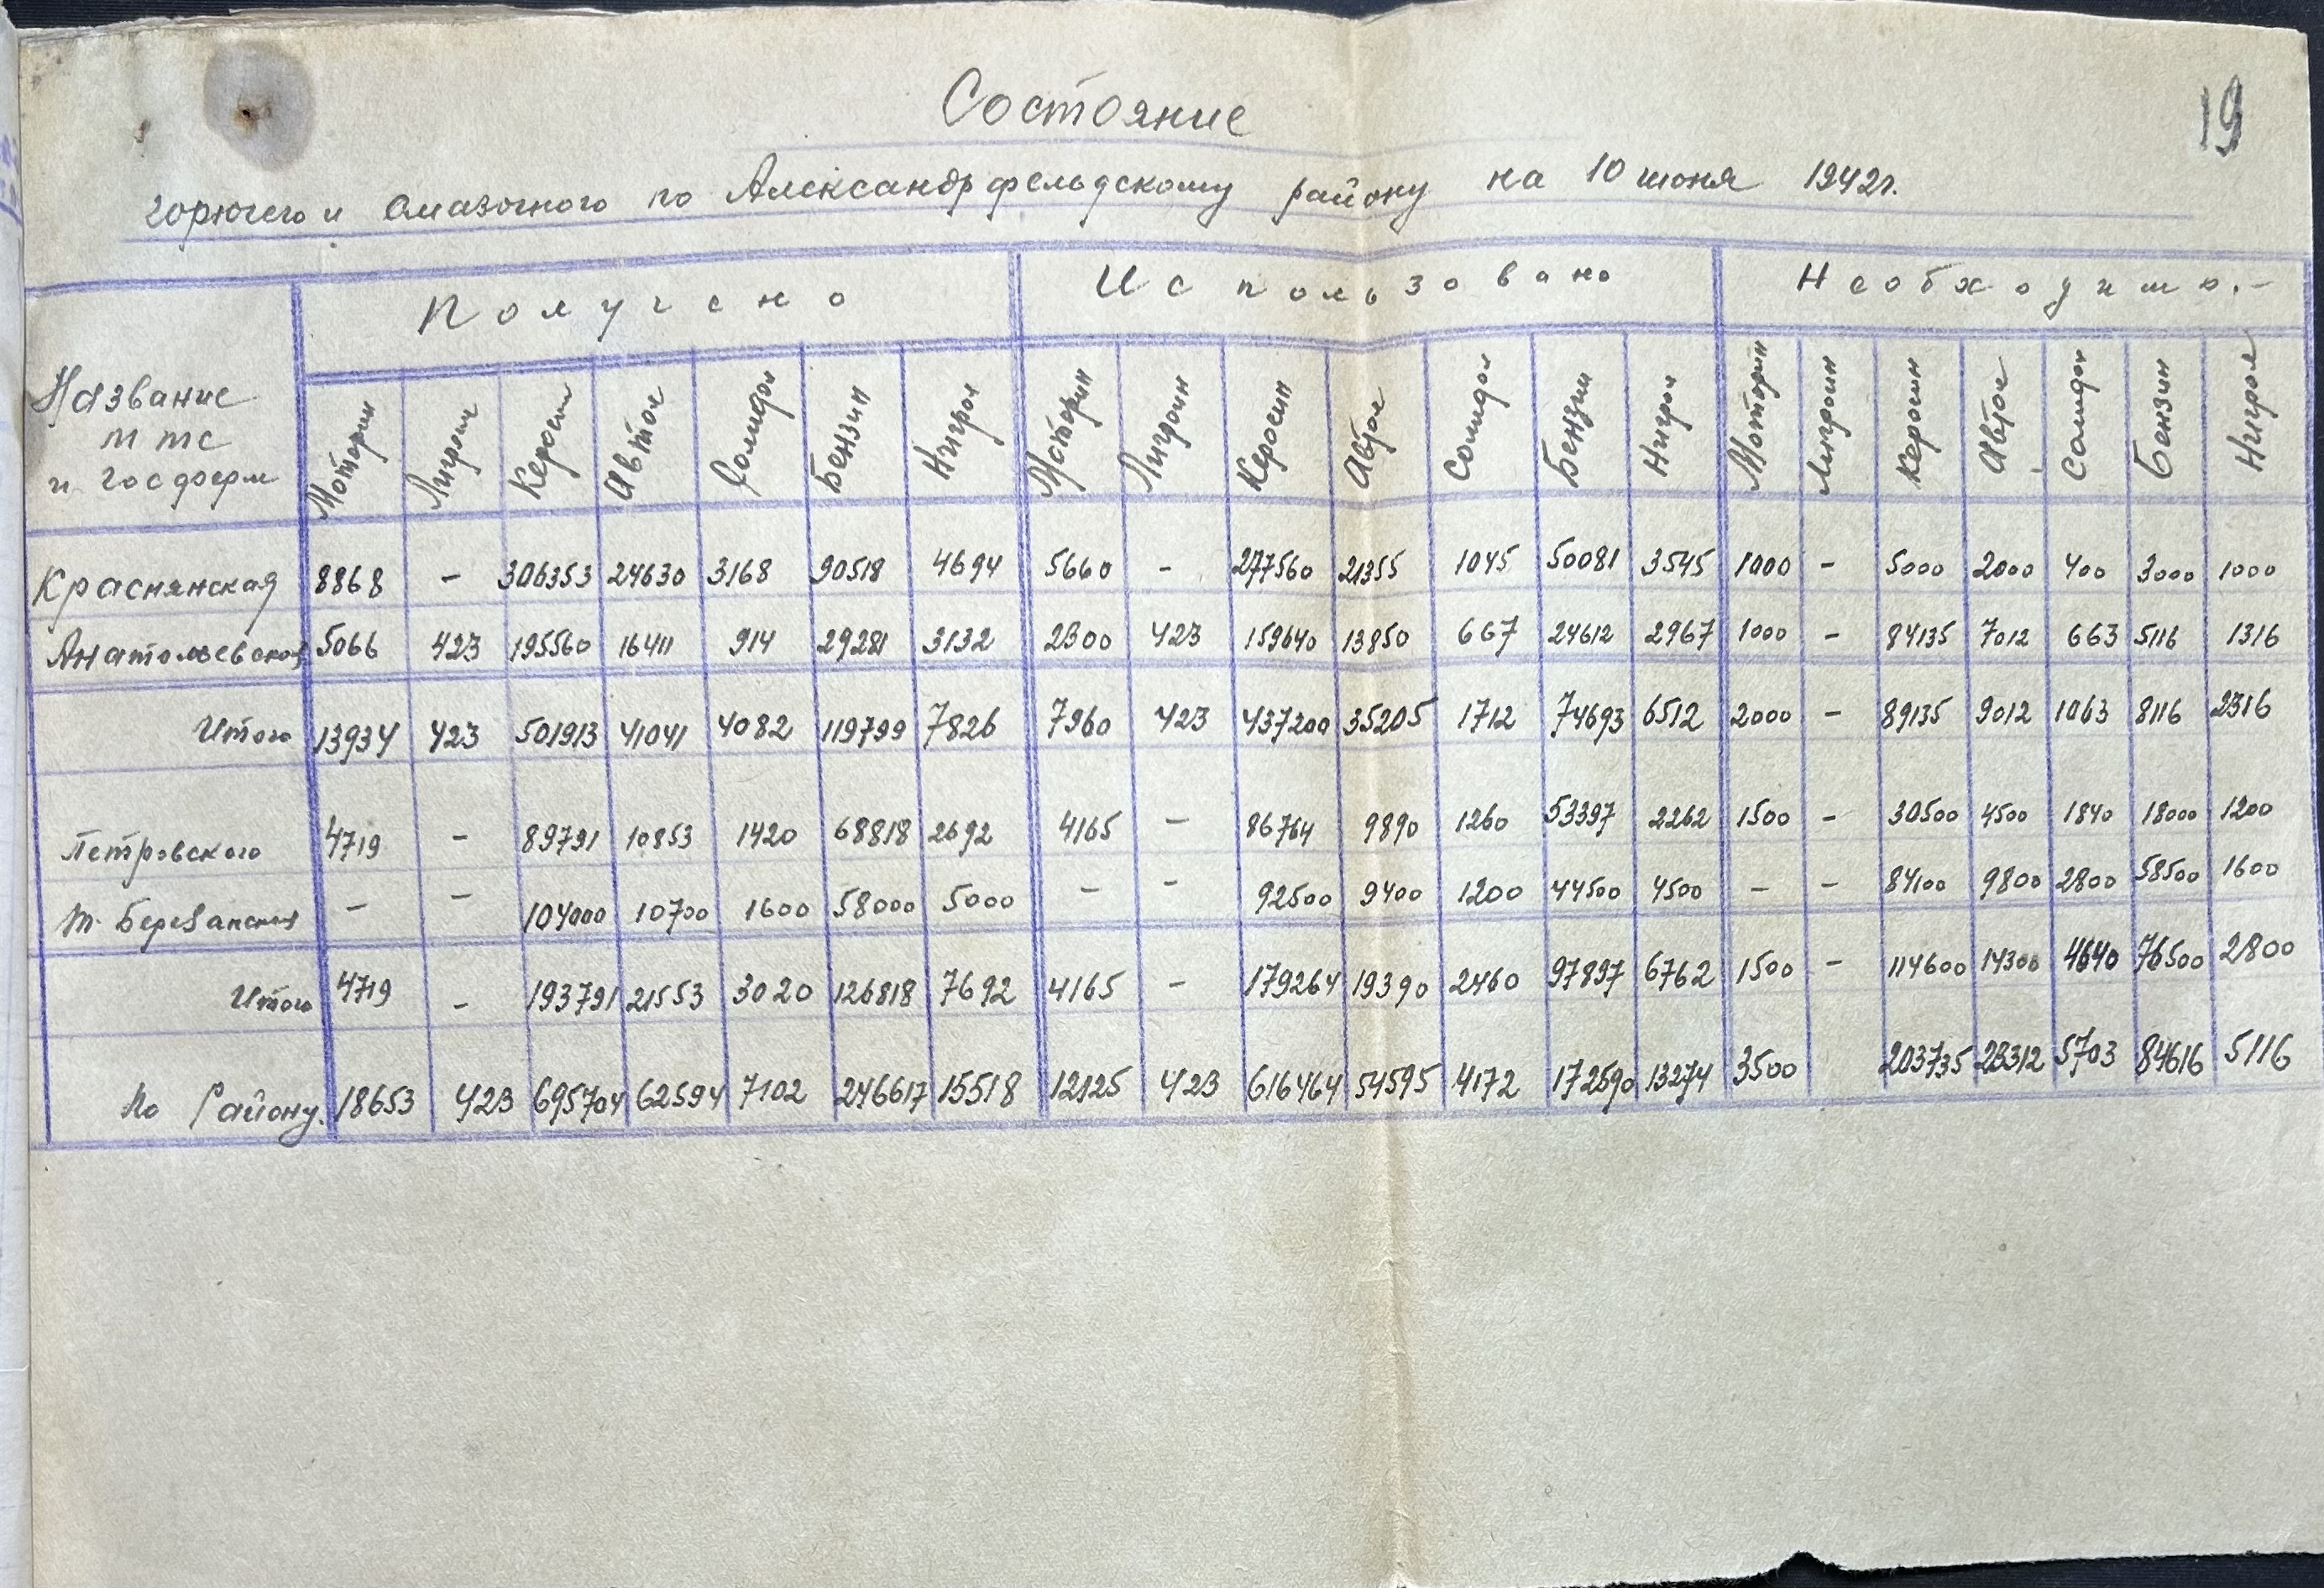 19
Состояние
горючего и смазочного по Александрфельдскому району на 10 июня 1942г.
Название мтс и госферм | Получено | Использовано | Необходимо.-
Моторин | Лигроин | Керосин | Автол | Солидол | Бензин | Нигрол | Моторин | Лигроин | Керосин | Автол | Солидол | Бензин | Нигрол | Моторин | Лигроин | Керосин | Автол | Солидол | Бензин | Нигрол
Краснянская | 8868 | - | 306353 | 24630 | 3168 | 90518 | 4694 | 5660 | - | 277560 | 21355 | 1045 | 50081 | 3545 | 1000 | - | 5000 | 2000 | 400 | 3000 | 1000
Анатольевская | 5066 | 423 | 195560 | 16411 | 914 | 29281 | 3132 | 2300 | 423 | 159640 | 13850 | 667 | 24612 | 2967 | 1000 | - | 84135 | 7012 | 663 | 5116 | 1316
Итого | 13934 | 423 | 501913 | 41041 | 4082 | 119799 | 7826 | 7960 | 423 | 437200 | 35205 | 1712 | 74693 | 6512 | 2000 | - | 89135 | 9012 | 1063 | 8116 | 2316
Петровского | 4719 | - | 89791 | 10853 | 1420 | 68818 | 2692 | 4165 | - | 86764 | 9890 | 1260 | 53397 | 2262 | 1500 | - | 30500 | 4500 | 1840 | 18000 | 1200
Т. Березанская | - | - | 104000 | 10700 | 1600 | 58000 | 5000 | - | - | 92500 | 9400 | 1200 | 44500 | 4500 | - | - | 84100 | 9800 | 2800 | 58500 | 1600
Итого | 4719 | - | 193791 | 21553 | 3020 | 126818 | 7692 | 4165 | - | 179264 | 19390 | 2460 | 97897 | 6762 | 1500 | - | 114600 | 14300 | 4640 | 76500 | 2800
По Району. | 18653 | 423 | 695704 | 62594 | 7102 | 246617 | 15518 | 12125 | 423 | 616464 | 54595 | 4172 | 172590 | 13274 | 3500 | 203735 | 23312 | 5703 | 84616 | 5116